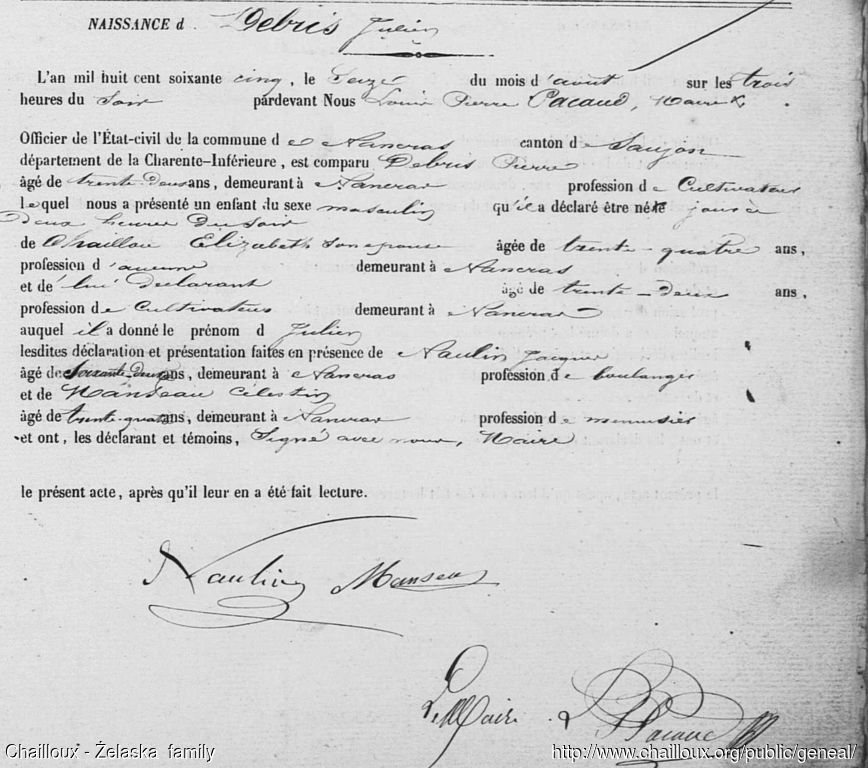 NAISSANCE d Debris Julien
L'an mil huit cent soixante cinq, le Seize du mois d'août sur les trois
heures du Soir pardevant Nous Louis Pierre Pacaud, Maire
Officier de l'État-civil de la commune d e Nancras canton d e Saujon
département de la Charente-Inférieure, est comparu Debris Pierre
âgé de trente-deux ans, demeurant à Nancras profession d e Cultivateur
lequel nous a présenté un enfant du sexe masculin qu'il a déclaré être né ce jour à
Deux heures Du Soir
de Chaillou Elizabeth son epouse âgée de trente-quatre ans,
profession d'aucune demeurant à Nancras
et de lui Declarant âgé de trente-deux ans,
profession d e Cultivateur demeurant à Nancras
auquel il a donné le prénom d Julien
lesdites déclaration et présentation faites en présence de Naulin Jacques
âgé de Soixante-deux ans, demeurant à Nancras profession d e boulanger
et de Manseau Célestin
âgé de trente-quatre ans, demeurant à Nancras profession d e menuisier
et ont, les déclarant et témoins, Signé avec nous, Maire
le présent acte, après qu'il leur en a été fait lecture.
Naulin Manseau
Le Maire
Pacaud
Chailloux - Želaska family http://www.chailloux.org/public/geneal/